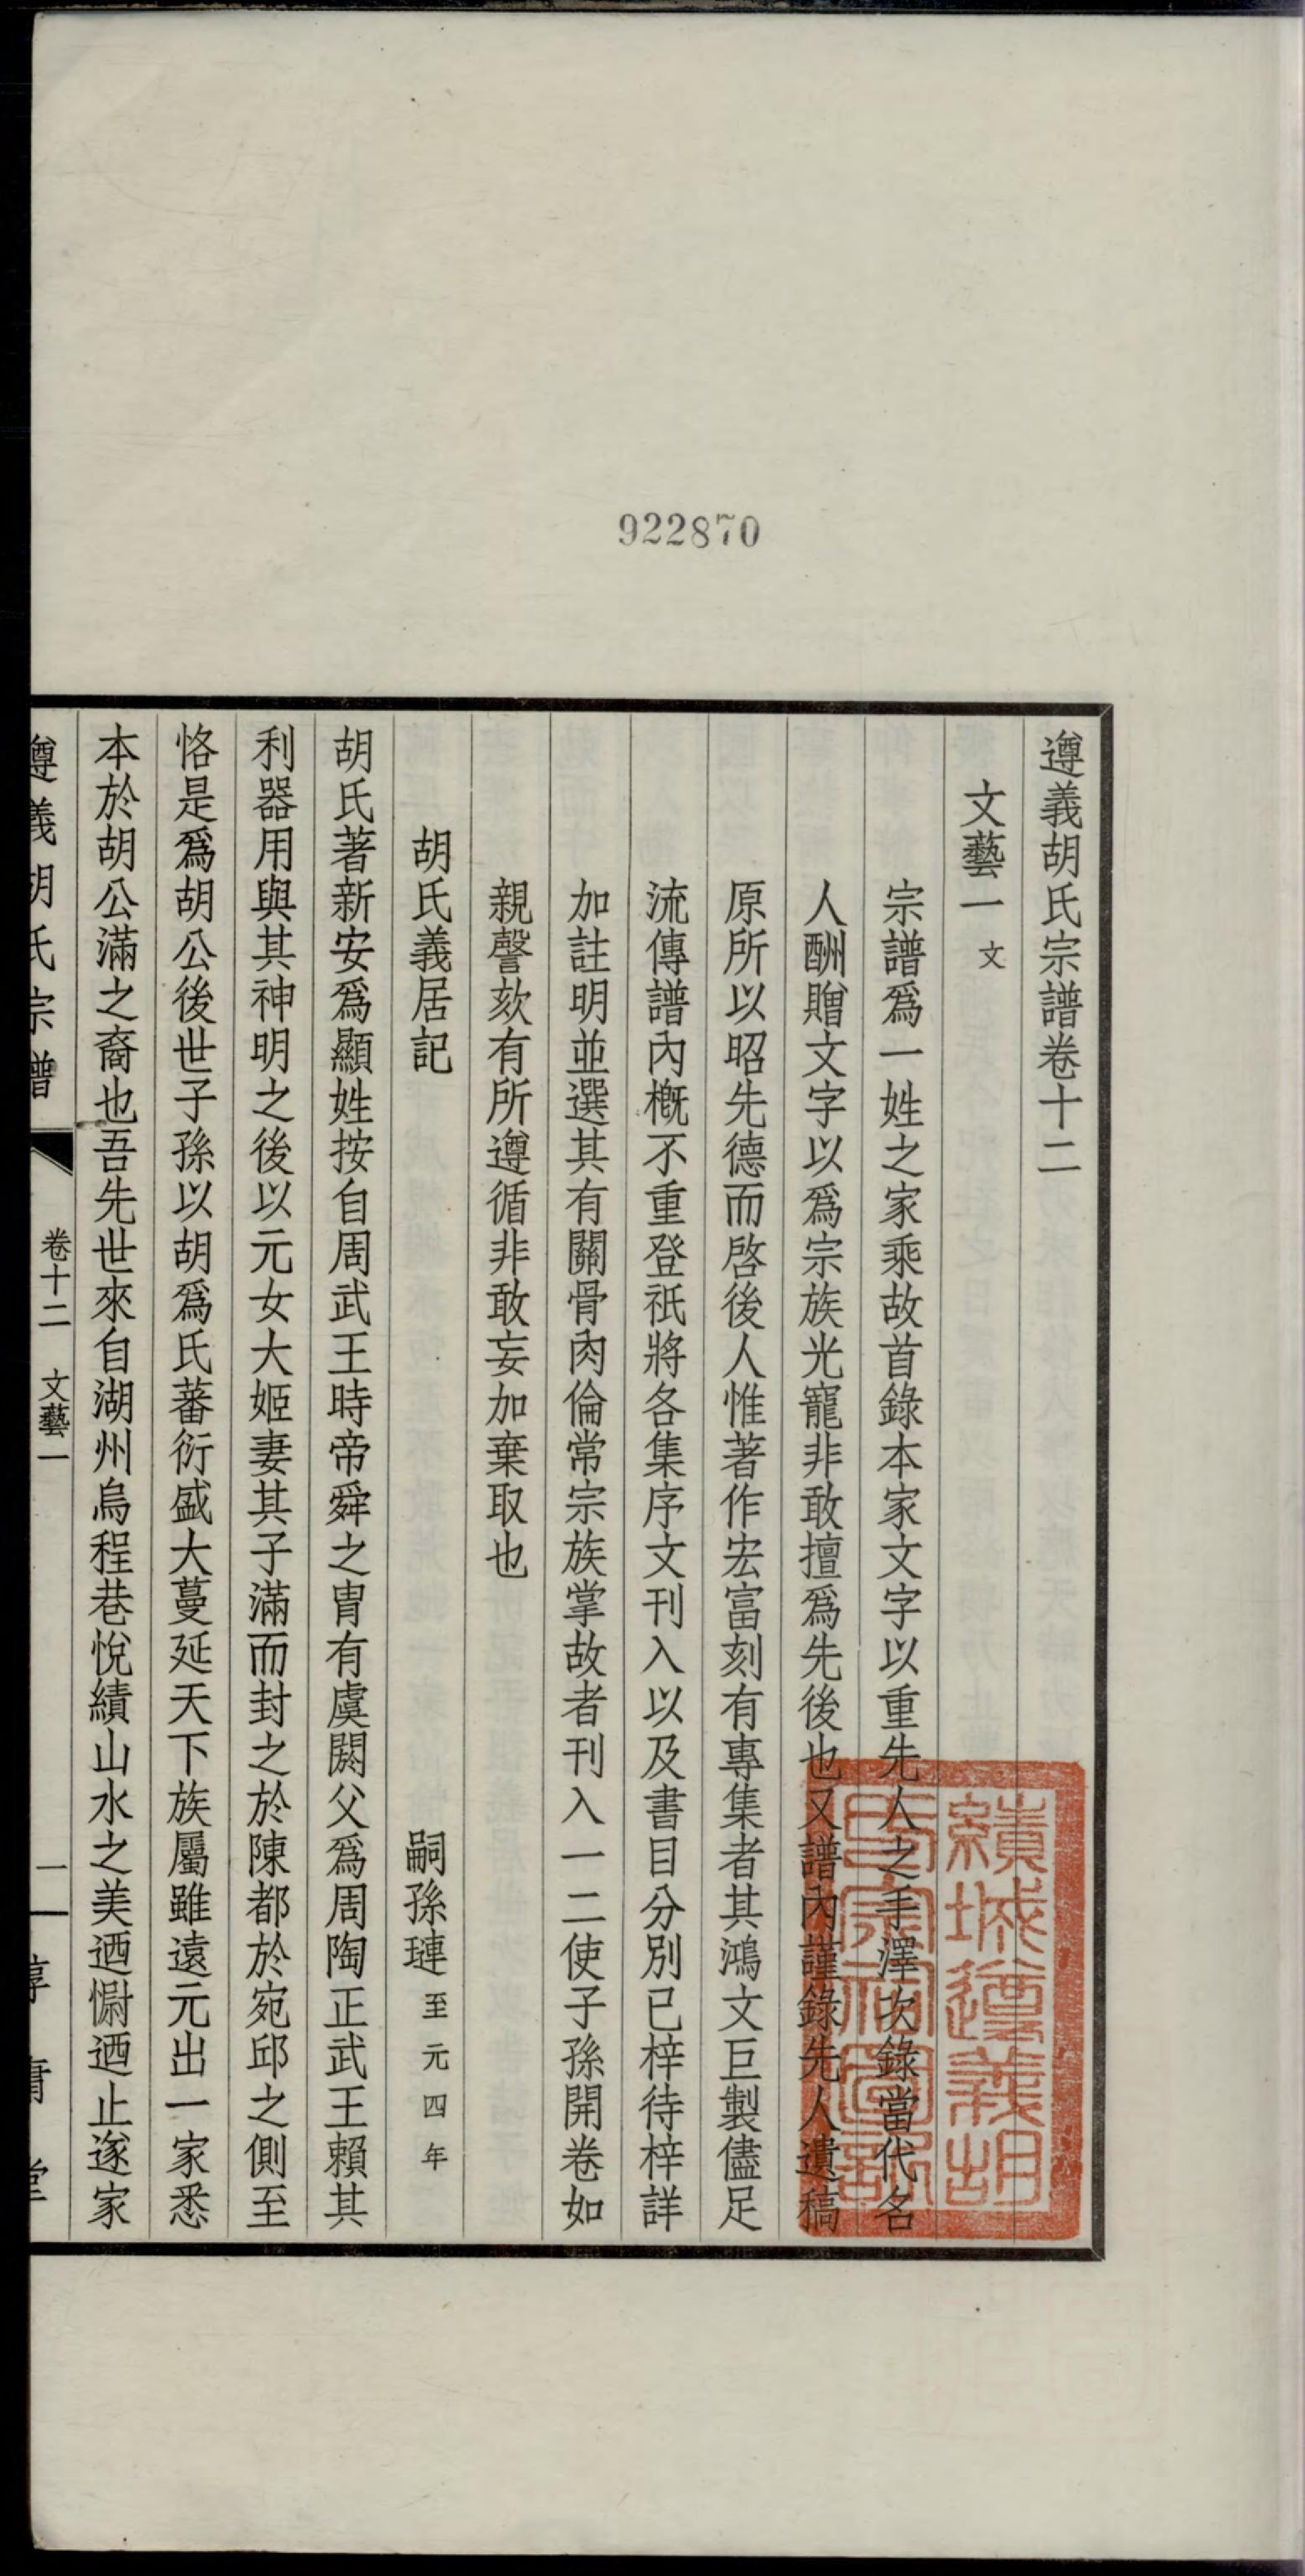 922870
遵義胡氏宗譜卷十二
文藝一 文
宗譜爲一姓之家乘故首錄本家文字以重先人之手澤次錄當代名
人酬贈文字以爲宗族光寵非敢擅爲先後也又譜內謹錄先人遺稿
原所以昭先德而啓後人惟著作宏富刻有專集者其鴻文巨製儘足
流傳譜內槪不重登祇將各集序文刊入以及書目分別已梓待梓詳
加註明並選其有關骨肉倫常宗族掌故者刊入一二使子孫開卷如
親謦欬有所遵循非敢妄加棄取也
胡氏義居記 嗣孫璉 至元四年
胡氏著新安爲顯姓按自周武王時帝舜之胄有虞閼父爲周陶正武王賴其
利器用與其神明之後以元女大姬妻其子滿而封之於陳都於宛邱之側至
恪是爲胡公後世子孫以胡爲氏蕃衍盛大蔓延天下族屬雖遠元出一家悉
本於胡公滿之裔也吾先世來自湖州烏程巷悅績山水之美迺懰迺止遂家
遵義胡氏宗譜 卷十二 文藝一 一
績城遵義胡